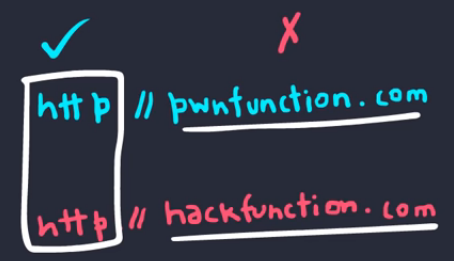 ✓ ✗
http // pwnfunction.com
http // hackfunction.com